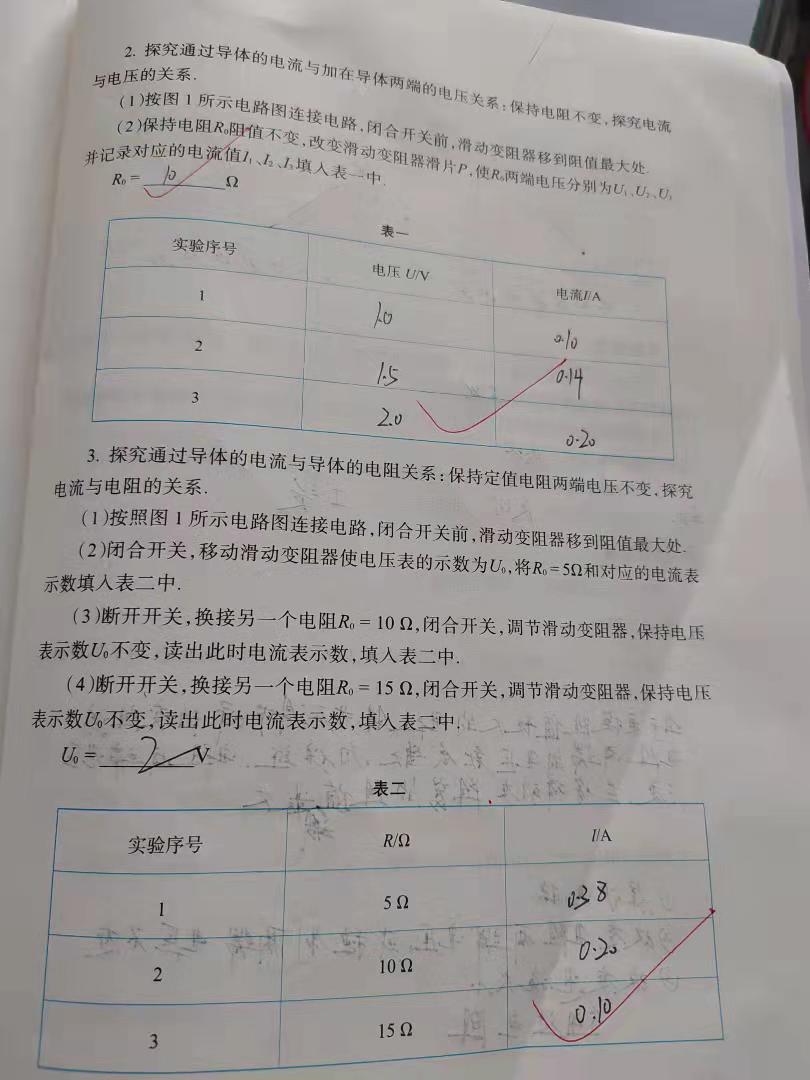 2. 探究通过导体的电流与加在导体两端的电压关系：保持电阻不变，探究电流
与电压的关系.
(1)按图 1 所示电路图连接电路，闭合开关前，滑动变阻器移到阻值最大处.
(2)保持电阻R₀阻值不变，改变滑动变阻器滑片P，使R₀两端电压分别为U₁、U₂、U₃
并记录对应的电流值I₁、I₂、I₃填入表一中.
R₀= 10 Ω
表一
实验序号 电压 U/V 电流I/A
1 1.0 0.10
2 1.5 0.14
3 2.0 0.20
3. 探究通过导体的电流与导体的电阻关系：保持定值电阻两端电压不变，探究
电流与电阻的关系.
(1)按照图 1 所示电路图连接电路，闭合开关前，滑动变阻器移到阻值最大处.
(2)闭合开关，移动滑动变阻器使电压表的示数为U₀，将R₀=5Ω和对应的电流表
示数填入表二中.
(3)断开开关，换接另一个电阻R₀= 10 Ω，闭合开关，调节滑动变阻器，保持电压
表示数U₀不变，读出此时电流表示数，填入表二中.
(4)断开开关，换接另一个电阻R₀= 15 Ω，闭合开关，调节滑动变阻器，保持电压
表示数U₀不变，读出此时电流表示数，填入表二中.
U₀= 2 V
表二
实验序号 R/Ω I/A
1 5 Ω 0.38
2 10 Ω 0.20
3 15 Ω 0.10